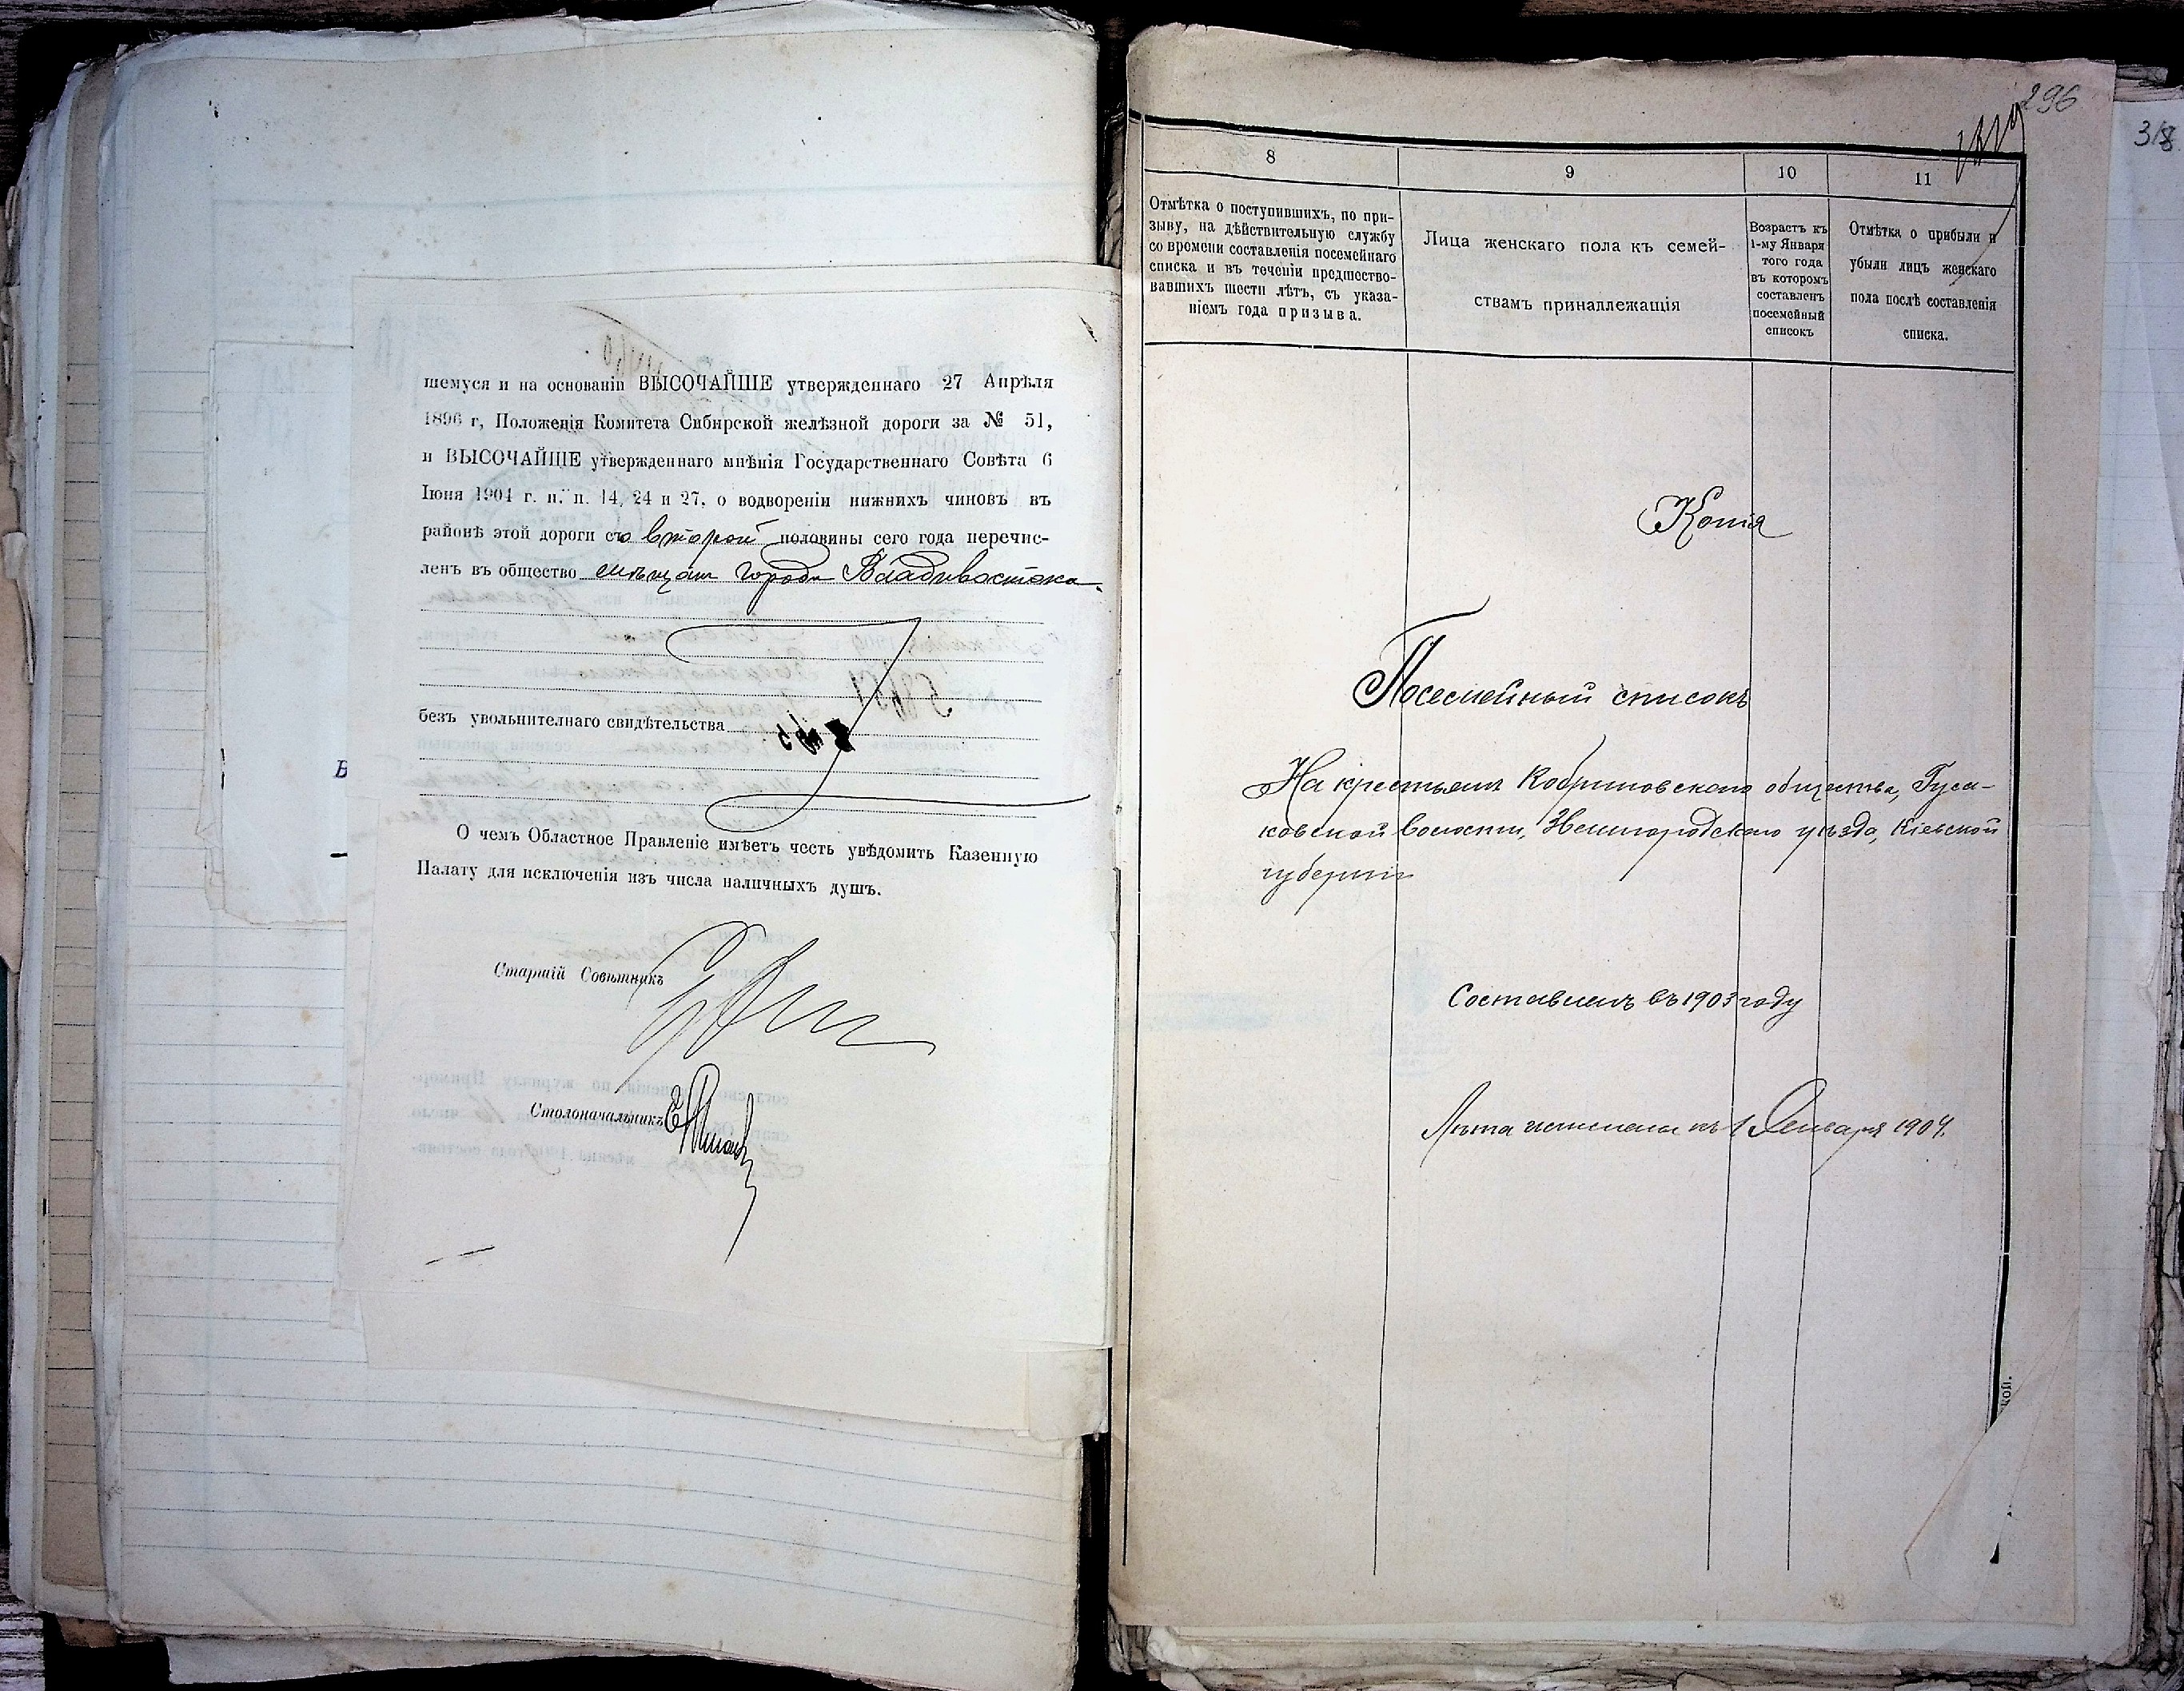 шемуся и на основаніи ВЫСОЧАЙШЕ утвержденнаго 27 Апрѣля
1896 г, Положенія Комитета Сибирской желѣзной дороги за № 51,
и ВЫСОЧАЙШЕ утвержденнаго мнѣнія Государственнаго Совѣта 6
Іюня 1904 г. п. п. 14, 24 и 27, о водвореніи нижнихъ чиновъ въ
районѣ этой дороги со второй половины сего года перечис-
ленъ въ общество мѣщан города Владивостока
безъ увольнителнаго свидѣтельства
О чемъ Областное Правленіе имѣетъ честь увѣдомить Казенную
Палату для исключенія изъ числа наличныхъ душъ.
Старшій Совѣтникъ
Столоначальникъ
296
318
8
9
10
11
Отмѣтка о поступившихъ, по при-
зыву, на дѣйствительную службу
со времени составленія посемейнаго
списка и въ теченіи предшество-
вавшихъ шести лѣтъ, съ указа-
ніемъ года призыва.
Лица женскаго пола къ семей-
ствамъ принадлежащія
Возрастъ къ
1-му Января
того года
въ которомъ
составленъ
посемейный
списокъ
Отмѣтка о прибыли и
убыли лицъ женскаго
пола послѣ составленія
списка.
Копія
Посемейный списокъ
На крестьянъ Кобриновскаго общества, Гуса-
ковской волости, Звенигородскаго уѣзда, Кіевской
губерніи
Составленъ въ 1903 году
Лѣта исчислены къ 1 Января 1904.